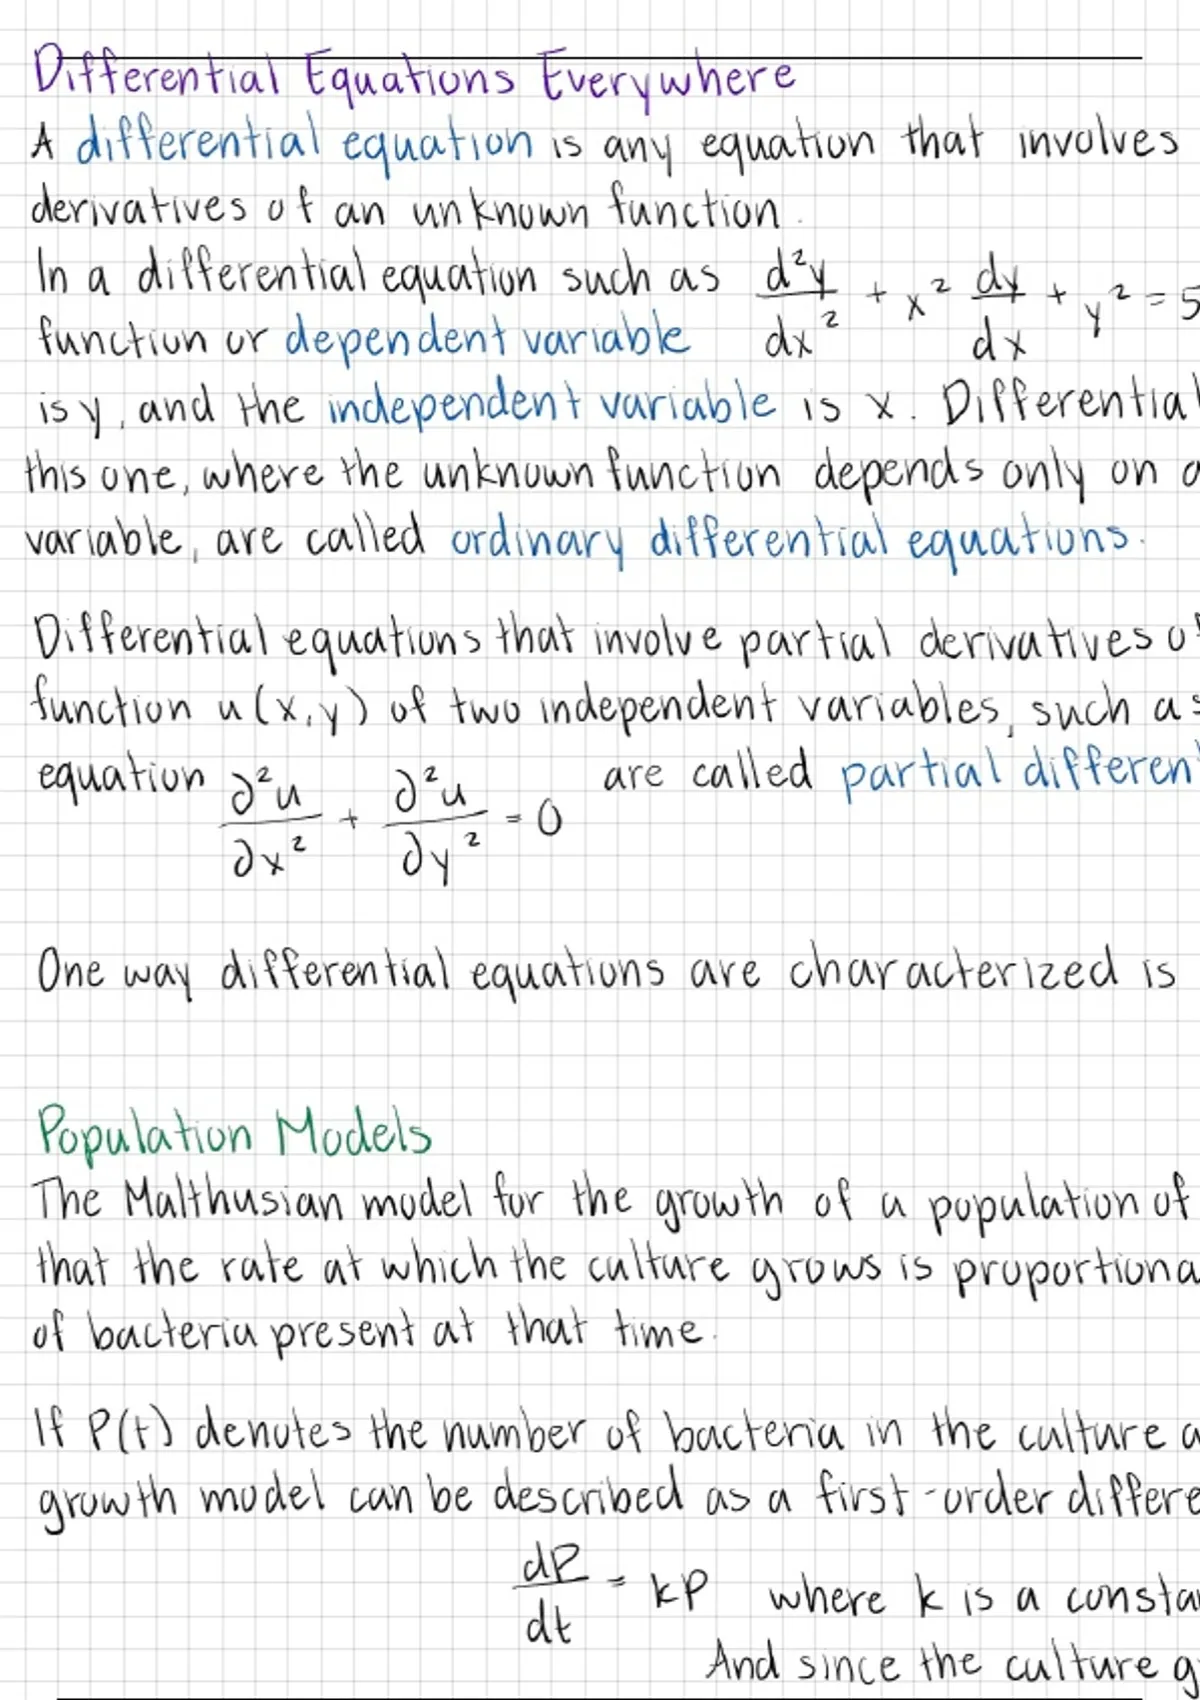 Differential Equations Everywhere
A differential equation is any equation that involves
derivatives of an unknown function.
In a differential equation such as d²y/dx² + x² dy/dx + y² = 5
function or dependent variable
is y, and the independent variable is x. Differential
this one, where the unknown function depends only on
variable, are called ordinary differential equations.
Differential equations that involve partial derivatives of
function u(x,y) of two independent variables, such as
equation ∂²u/∂x² + ∂²u/∂y² = 0 are called partial differen
One way differential equations are characterized is
Population Models
The Malthusian model for the growth of a population of
that the rate at which the culture grows is proportiona
of bacteria present at that time.
If P(t) denotes the number of bacteria in the culture a
growth model can be described as a first-order differe
dP/dt = kP where k is a constan
And since the culture g